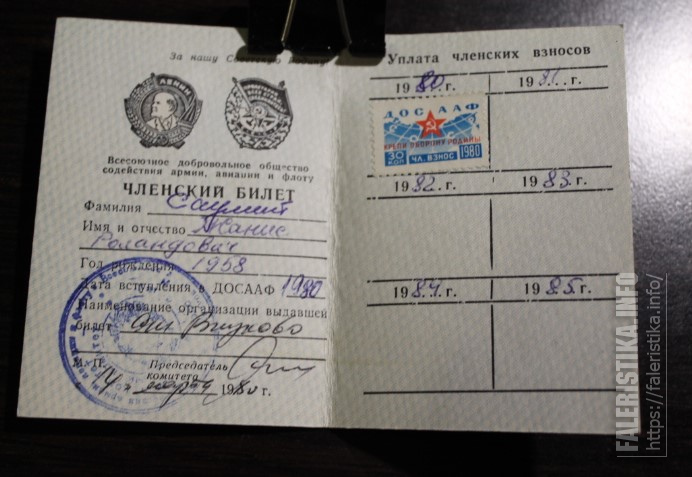 За нашу Советскую Родину
ЛЕНИН
Всесоюзное добровольное общество
содействия армии, авиации и флоту
ЧЛЕНСКИЙ БИЛЕТ
Фамилия Саулит
Имя и отчество Жанис
Роландович
Год рождения 1958
Дата вступления в ДОСААФ 1980
Наименование организации выдавшей
билет
М. П. Председатель
комитета
14 1980 г.
Уплата членских взносов
1980. г. 1981. г.
ДОСААФ
КРЕПИ ОБОРОНУ РОДИНЫ
30 КОП ЧЛ. ВЗНОС 1980
1982. г. 1983. г.
1984. г. 1985. г.
FALERISTIKA.INFO
https://faleristika.info/